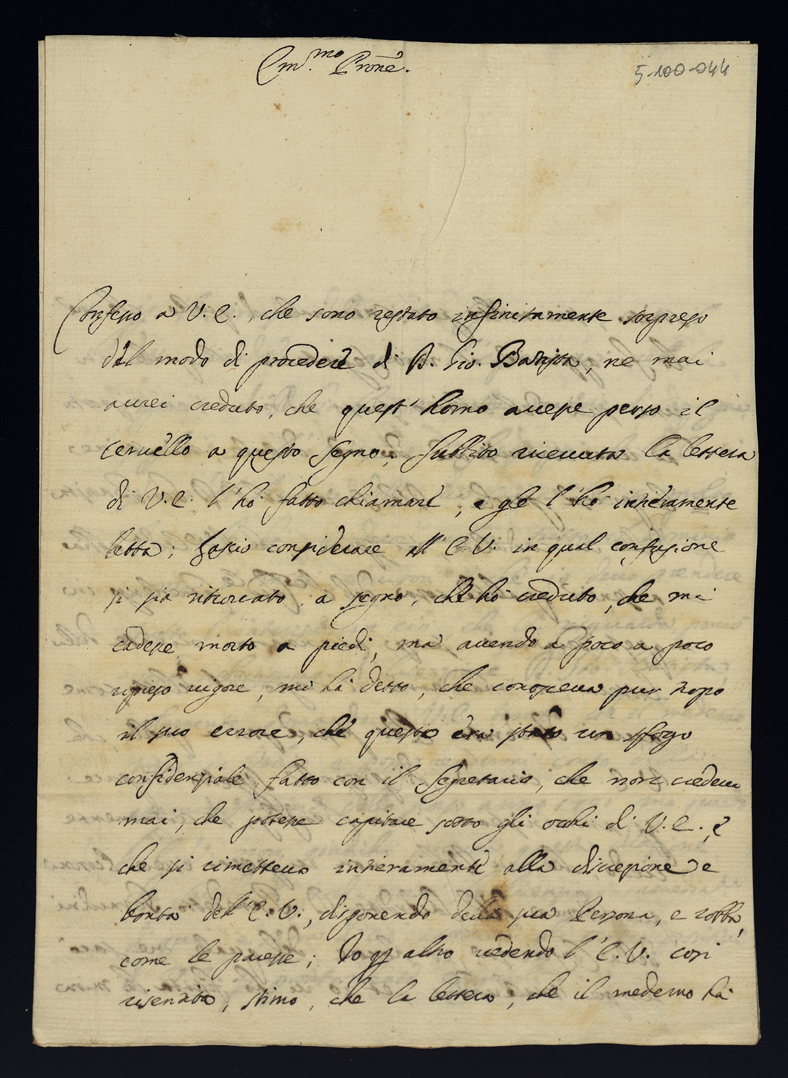 Em.mo Prone.
5-100-044
Confesso a V. E., che sono restato infinitamente sorpreso
dal modo di procedere di D. Gio. Battista, ne mai
averei creduto, che quest'homo avesse perso il
cervello a questo segno; subbito ricevuta la lettera
di V. E. l'hò fatto chiamare, e gle l'hò intieramente
letta; lascio considerare all' E. V. in qual confusione
si sia ritrovato, a segno, che hò creduto, che mi
cadesse morto a piedi, ma avendo a poco a poco
ripreso vigore, mi hà detto, che conosceva pur tropo
il suo errore, che questo era stato un sfogo
confidenziale fatto con il Segretario, che non credeva
mai, che potesse capitare sotto gli occhi di V. E., e
che si rimetteva intieramente alla discrezione e
bontà dell' E. V., disponendo della sua Persona, e robba,
come le paresse; Io per altro vedendo l' E. V. così
risentita, stimo, che la lettera, che il medemo hà